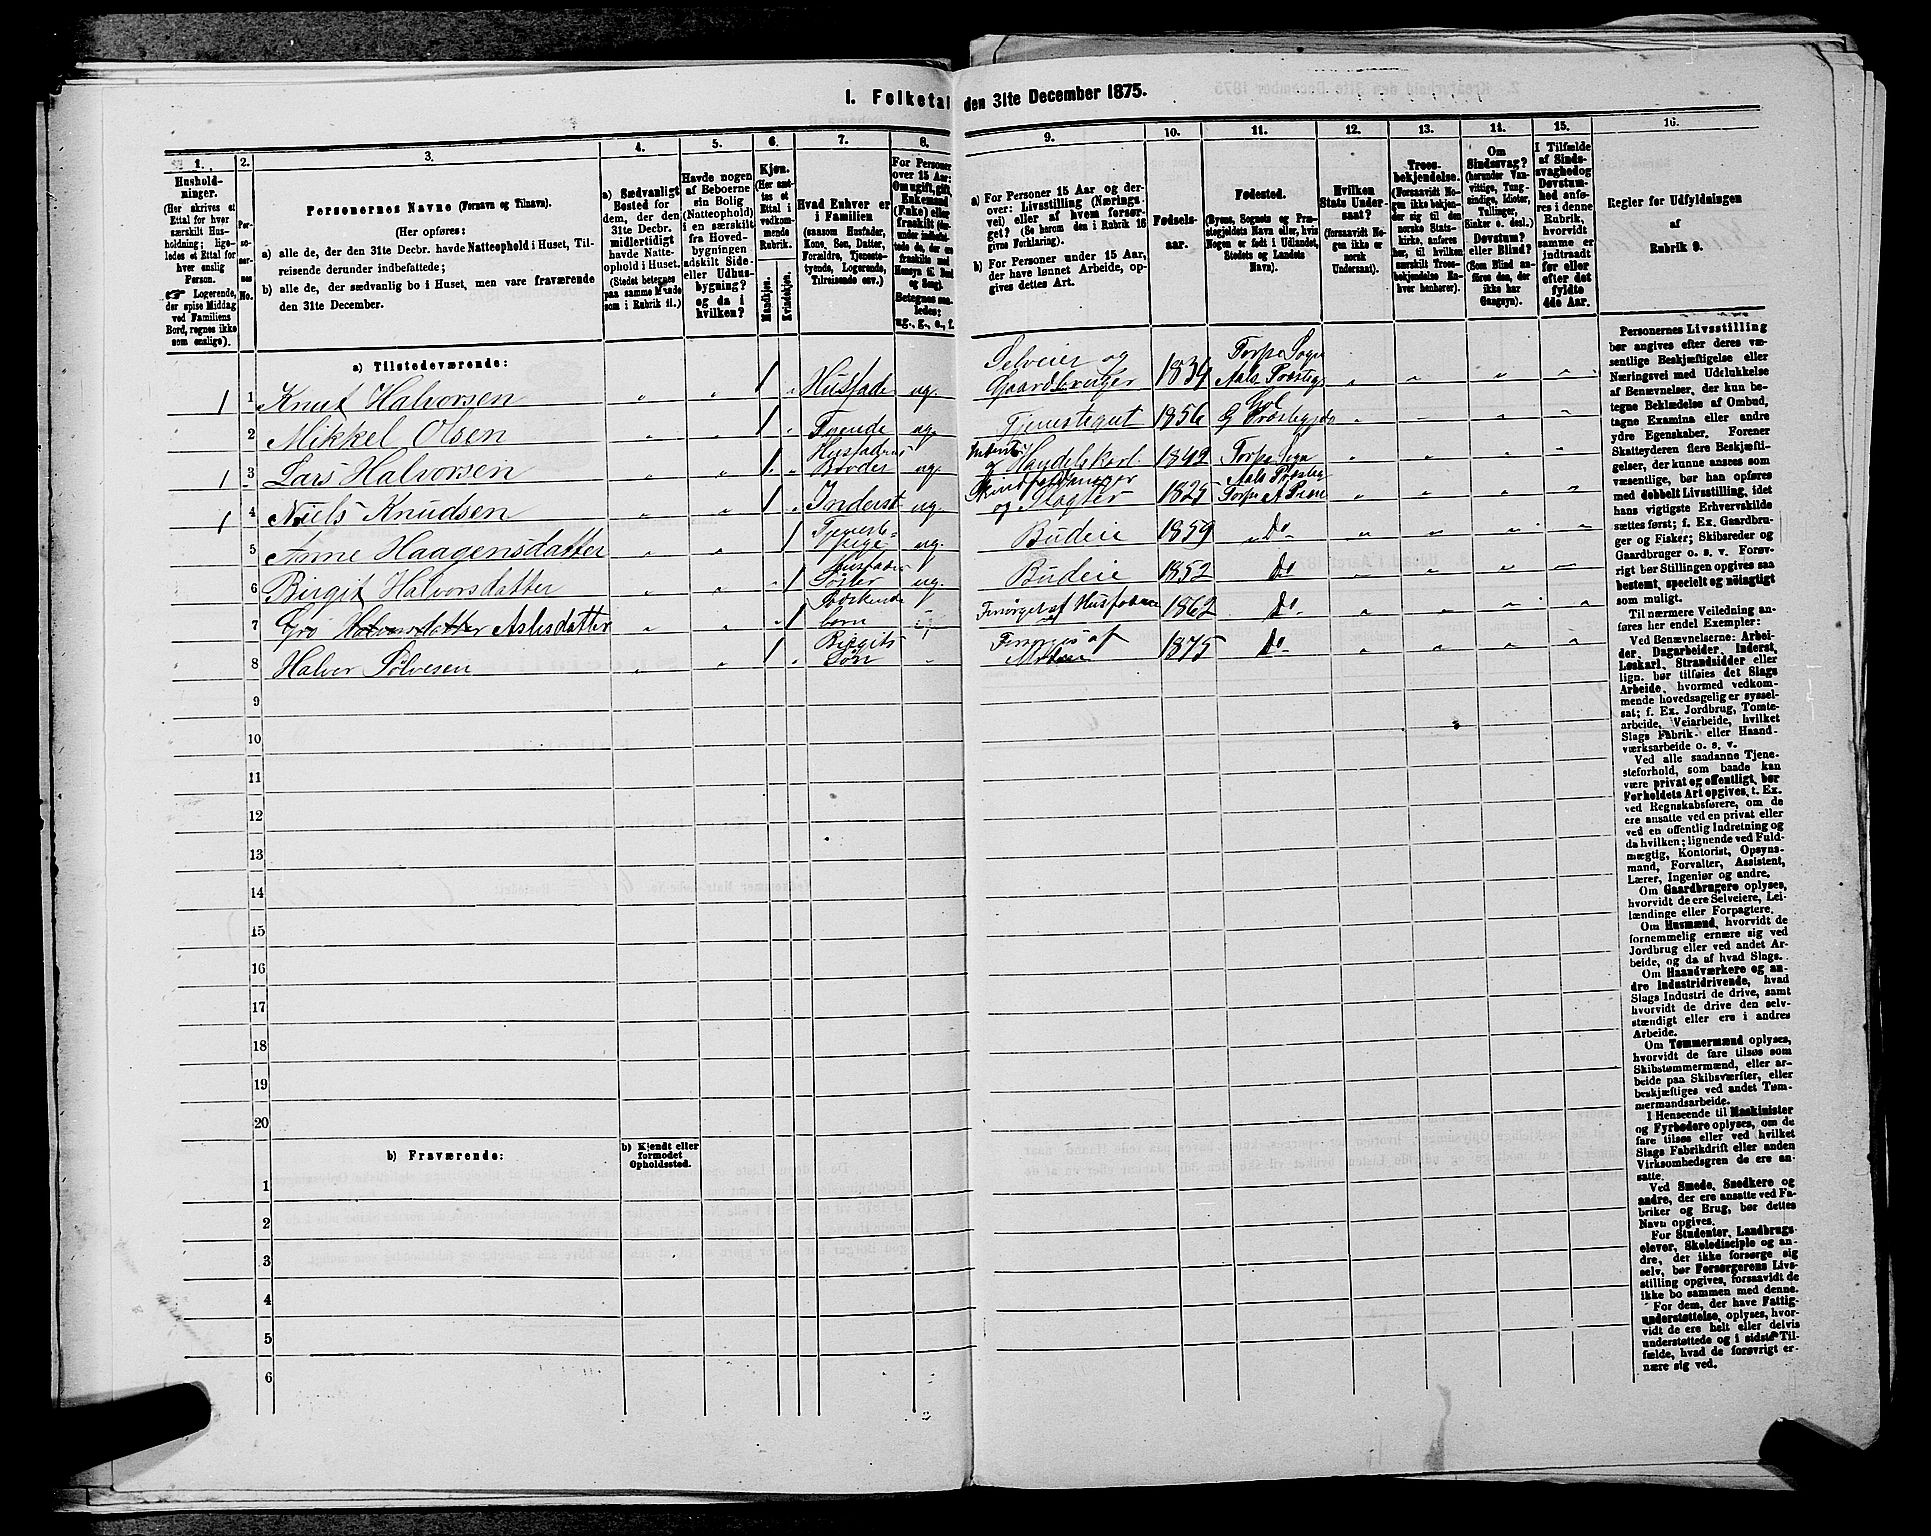 I. Folketal den 31te December 1875.
1.
Hushold-
ninger.
(Her skrives et
Ettal for hver
særskilt Hus-
holdning; lige-
ledes et Ettal for
hver enslig
Person.
☞ Logerende,
der spise Middag
ved Familiens
Bord, regnes ikke
som enslige).
2.
Per-
so-
ner-
nes
No.
3.
Personernes Navne (Fornavn og Tilnavn).
(Her opføres:
a) alle de, der den 31te Decbr. havde Natteophold i Huset, Til-
reisende derunder indbefattede;
b) alle de, der sædvanlig bo i Huset, men vare fraværende
den 31te December.
4.
a) Sædvanligt
Bosted for
dem, der den
31te Decbr.
midlertidigt
havde Natte-
ophold i Huset.
(Stedet betegnes
paa samme Maade
som i Rubrik 11.)
5.
Havde nogen
af Beboerne
sin Bolig
(Natteophold)
i en særskilt
fra Hoved-
bygningen
adskilt Side-
eller Udhus-
bygning?
og da i
hvilken?
6.
Kjøn.
(Her sæt-
tes et
Ettal i
vedkom-
mende
Rubrik.
Mandkjøn.
Kvindekjøn.
7.
Hvad Enhver er
i Familien
(saasom Husfader,
Kone, Søn, Datter,
Forældre, Tjeneste-
tyende, Logerende,
Tilreisende osv.)
8.
For Personer
over 15 Aar:
Om ugift, gift,
Enkemand
(Enke) eller
fraskilt
Betegnes saa-
ledes:
ug., g., e., f.
9.
a) For Personer 15 Aar og der-
over: Livsstilling (Nærings-
vei) eller af hvem forsør-
get? (Se herom den i Rubrik 16
givne Forklaring).
b) For Personer under 15 Aar,
der have lønnet Arbeide, op-
gives dettes Art.
10.
Fødsels-
aar.
11.
Fødested.
(Byens, Sognets og Præ-
stegjeldets Navn eller, hvis
Nogen er født i Udlandet,
Stedets og Landets
Navn).
12.
Hvilken
Stats Under-
saat?
(forsaavidt No-
gen ikke er
norsk
Undersaat).
13.
Troes-
bekjendelse.
(Forsaavidt No-
gen ikke bekjen-
der sig til den
norske Stats-
kirke, anføres
her, til hvilken
særskilt Troes-
bekjendelse En-
hver henhører).
14.
Om
Sindssvag?
(herunder Van-
vittige, Tung-
sindige, Idioter,
Tullinger,
Sinker o. desl.).
Døvstum?
eller Blind?
(Som Blind an-
føres den, der
ikke har
Gangsyn).
15.
I Tilfælde
af Sinds-
svaghed og
Døvstum-
hed anfø-
res i denne
Rubrik,
hvorvidt
samme er
indtraadt
før eller
efter det
fyldte
4de Aar.
16.
Regler for Udfyldningen
af
Rubrik 9.
a) Tilstedeværende:
1 1 Knut Halvorsen „ „ 1 „ Husfader ug. Selveier og Gaardbruger 1834 Torpe Sogn Aals Præsteg „ „ „ „
2 Mikkel Olsen „ „ 1 „ ug. Tjenestegut 1856 Gol G Præstegjeld „ „ „ „
1 3 Lars Halvorsen „ „ 1 „ Husfaderens Broder ug. Handelskarl 1842 Torpe Sogn Aals Præsteg „ „ „ „
1 4 Niels Knudsen „ „ 1 „ Inderst ug. og Slagter 1825 Torpe A Præst „ „ „ „
5 Anne Haagensdatter „ „ 1 Tjeneste- pige ug. Budeie 1859 „ Do „ „ „ „
6 Birgit Halvorsdatter „ „ „ 1 Husfaders Søster ug. Budeie 1852 Do „ „ „ „
7 Gro Halvorsdatter Aslesdatter „ „ „ 1 barn „ af Husfaderen 1862 Do „ „ „ „
8 Halvor Sølvesen „ „ 1 „ Birgits Søn „ af Moderen 1875 Do „ „ „ „
9
10
11
12
13
14
15
16
17
18
19
20
b) Fraværende:
b) Kjendt eller
formodet
Opholdssted.
1
2
3
4
5
6
Personernes Livsstilling
bør angives efter deres væ-
sentlige Beskjæftigelse eller
Næringsvei med Udelukkelse
af Benævnelser, der kun be-
tegne Beklædelse af Ombud,
tagne Examina eller andre
ydre Egenskaber. Forener
Skatteyderen flere Beskjæfti-
gelser, der kunne ansees som
væsentlige, bør han opføres
med dobbelt Livsstilling, idet
hans vigtigste Erhvervskilde
sættes først; f. Ex. Gaardbru-
ger og Fisker; Skibsreder og
Gaardbruger o. s. v. Forøv-
rigt bør Stillingen opgives saa
bestemt, specielt og nøiagtigt
som muligt.
Til nærmere Veiledning an-
føres her endel Exempler:
Ved Benævnelserne: Arbei-
der, Dagarbeider, Inderst,
Løskarl, Strandsidder eller
lign. bør tilføies det Slags
Arbeide, hvormed vedkom-
mende hovedsagelig er syssel-
sat; f. Ex. Jordbrug, Tomte-
arbeide, Veiarbeide, hvilket
Slags Fabrik- eller Haand-
værksarbeide o. s. v.
Ved alle saadanne Tjene-
steforhold, som baade kan
være privat og offentligt, bør
Forholdets Art opgives, t. Ex.
ved Regnskabsførere, om de
ere ansatte ved en privat eller
ved en offentlig Indretning og
da hvilken; lignende ved Fuld-
mægtig, Kontorist, Opsyns-
mand, Forvalter, Assistent,
Lærer, Ingeniør og andre.
Om Gaardbrugere oplyses,
hvorvidt de ere Selveiere, Lei-
lændinge eller Forpagtere.
Om Husmænd, hvorvidt de
fornemmelig ernære sig ved
Jordbrug eller ved andet Ar-
beide, og da af hvad Slags.
Om Haandværkere og an-
dre Industridrivende, hvad
Slags Industri de drive, samt
hvorvidt de drive den selv-
stændigt eller ere i andres
Arbeide.
Om Tømmermænd oplyses,
hvorvidt de fare tilsøs som
Skibstømmermænd, eller ar-
beide paa Skibsværfter, eller
beskjæftiges ved andet Tøm-
mermandsarbeide.
I Henseende til Maskinister
og Fyrbødere oplyses, om de
fare tilsøs eller ved hvilket
Slags Fabrikdrift eller anden
Virksomhedsgren de ere an-
satte.
Ved Smede, Snedkere og
andre, der ere ansatte ved Fa-
briker og Brug, bør dettes
Navn opgives.
For Studenter, Landbrugs-
elever, Skoledisciple og an-
dre, der ikke forsørge sig
selv, bør Forsørgerens Livs-
stilling opgives, forsaavidt de
ikke bo sammen med denne.
For dem, der have Fattig-
understøttelse, oplyses, hvor-
vidt de ere helt eller delvis
understøttede og i sidste Til-
fælde, hvad de forøvrigt er-
nære sig ved.